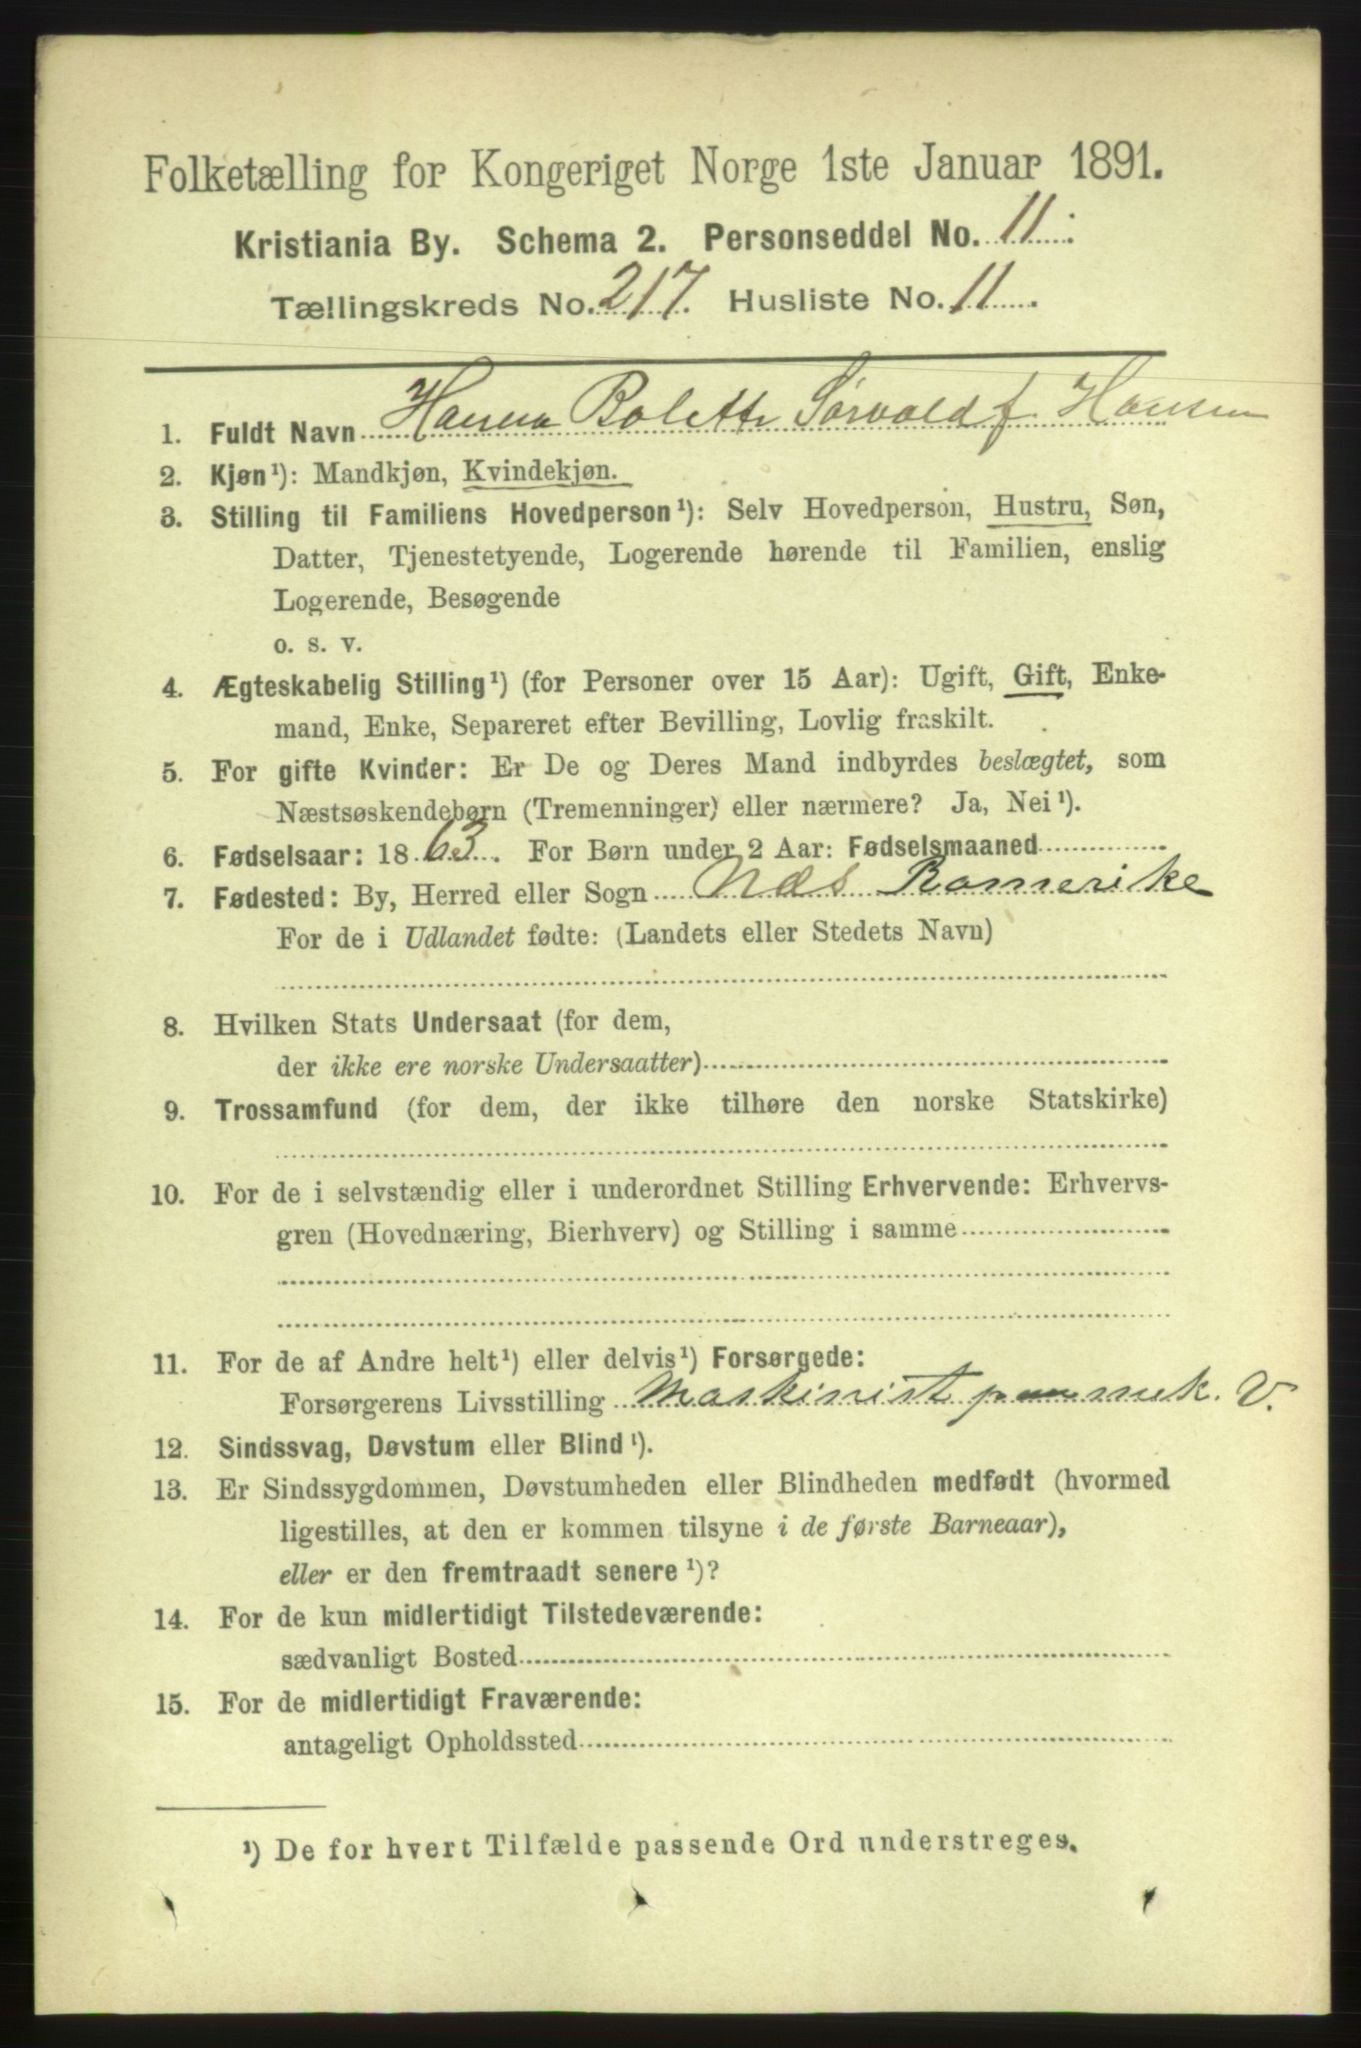 Folketælling for Kongeriget Norge 1ste Januar 1891.
Kristiania By. Schema 2. Personseddel No. 11.
Tællingskreds No. 217. Husliste No. 11.
1. Fuldt Navn Hanna Bolette Sørvold f. Hansen
2. Kjøn¹): Mandkjøn, Kvindekjøn.
3. Stilling til Familiens Hovedperson¹): Selv Hovedperson, Hustru, Søn,
Datter, Tjenestetyende, Logerende hørende til Familien, enslig
Logerende, Besøgende
o. s. v.
4. Ægteskabelig Stilling¹) (for Personer over 15 Aar): Ugift, Gift, Enke-
mand, Enke, Separeret efter Bevilling, Lovlig fraskilt.
5. For gifte Kvinder: Er De og Deres Mand indbyrdes beslægtet, som
Næstsøskendebørn (Tremenninger) eller nærmere? Ja, Nei¹).
6. Fødselsaar: 1863. For Børn under 2 Aar: Fødselsmaaned
7. Fødested: By, Herred eller Sogn Næs Romerike
For de i Udlandet fødte: (Landets eller Stedets Navn)
8. Hvilken Stats Undersaat (for dem,
der ikke ere norske Undersaatter)
9. Trossamfund (for dem, der ikke tilhøre den norske Statskirke)
10. For de i selvstændig eller i underordnet Stilling Erhvervende: Erhvervs-
gren (Hovednæring, Bierhverv) og Stilling i samme
11. For de af Andre helt¹) eller delvis¹) Forsørgede:
Forsørgerens Livsstilling Maskinist mek. V.
12. Sindssvag, Døvstum eller Blind¹).
13. Er Sindssygdommen, Døvstumheden eller Blindheden medfødt (hvormed
ligestilles, at den er kommen tilsyne i de første Barneaar),
eller er den fremtraadt senere¹)?
14. For de kun midlertidigt Tilstedeværende:
sædvanligt Bosted
15. For de midlertidigt Fraværende:
antageligt Opholdssted
¹) De for hvert Tilfælde passende Ord understreges.